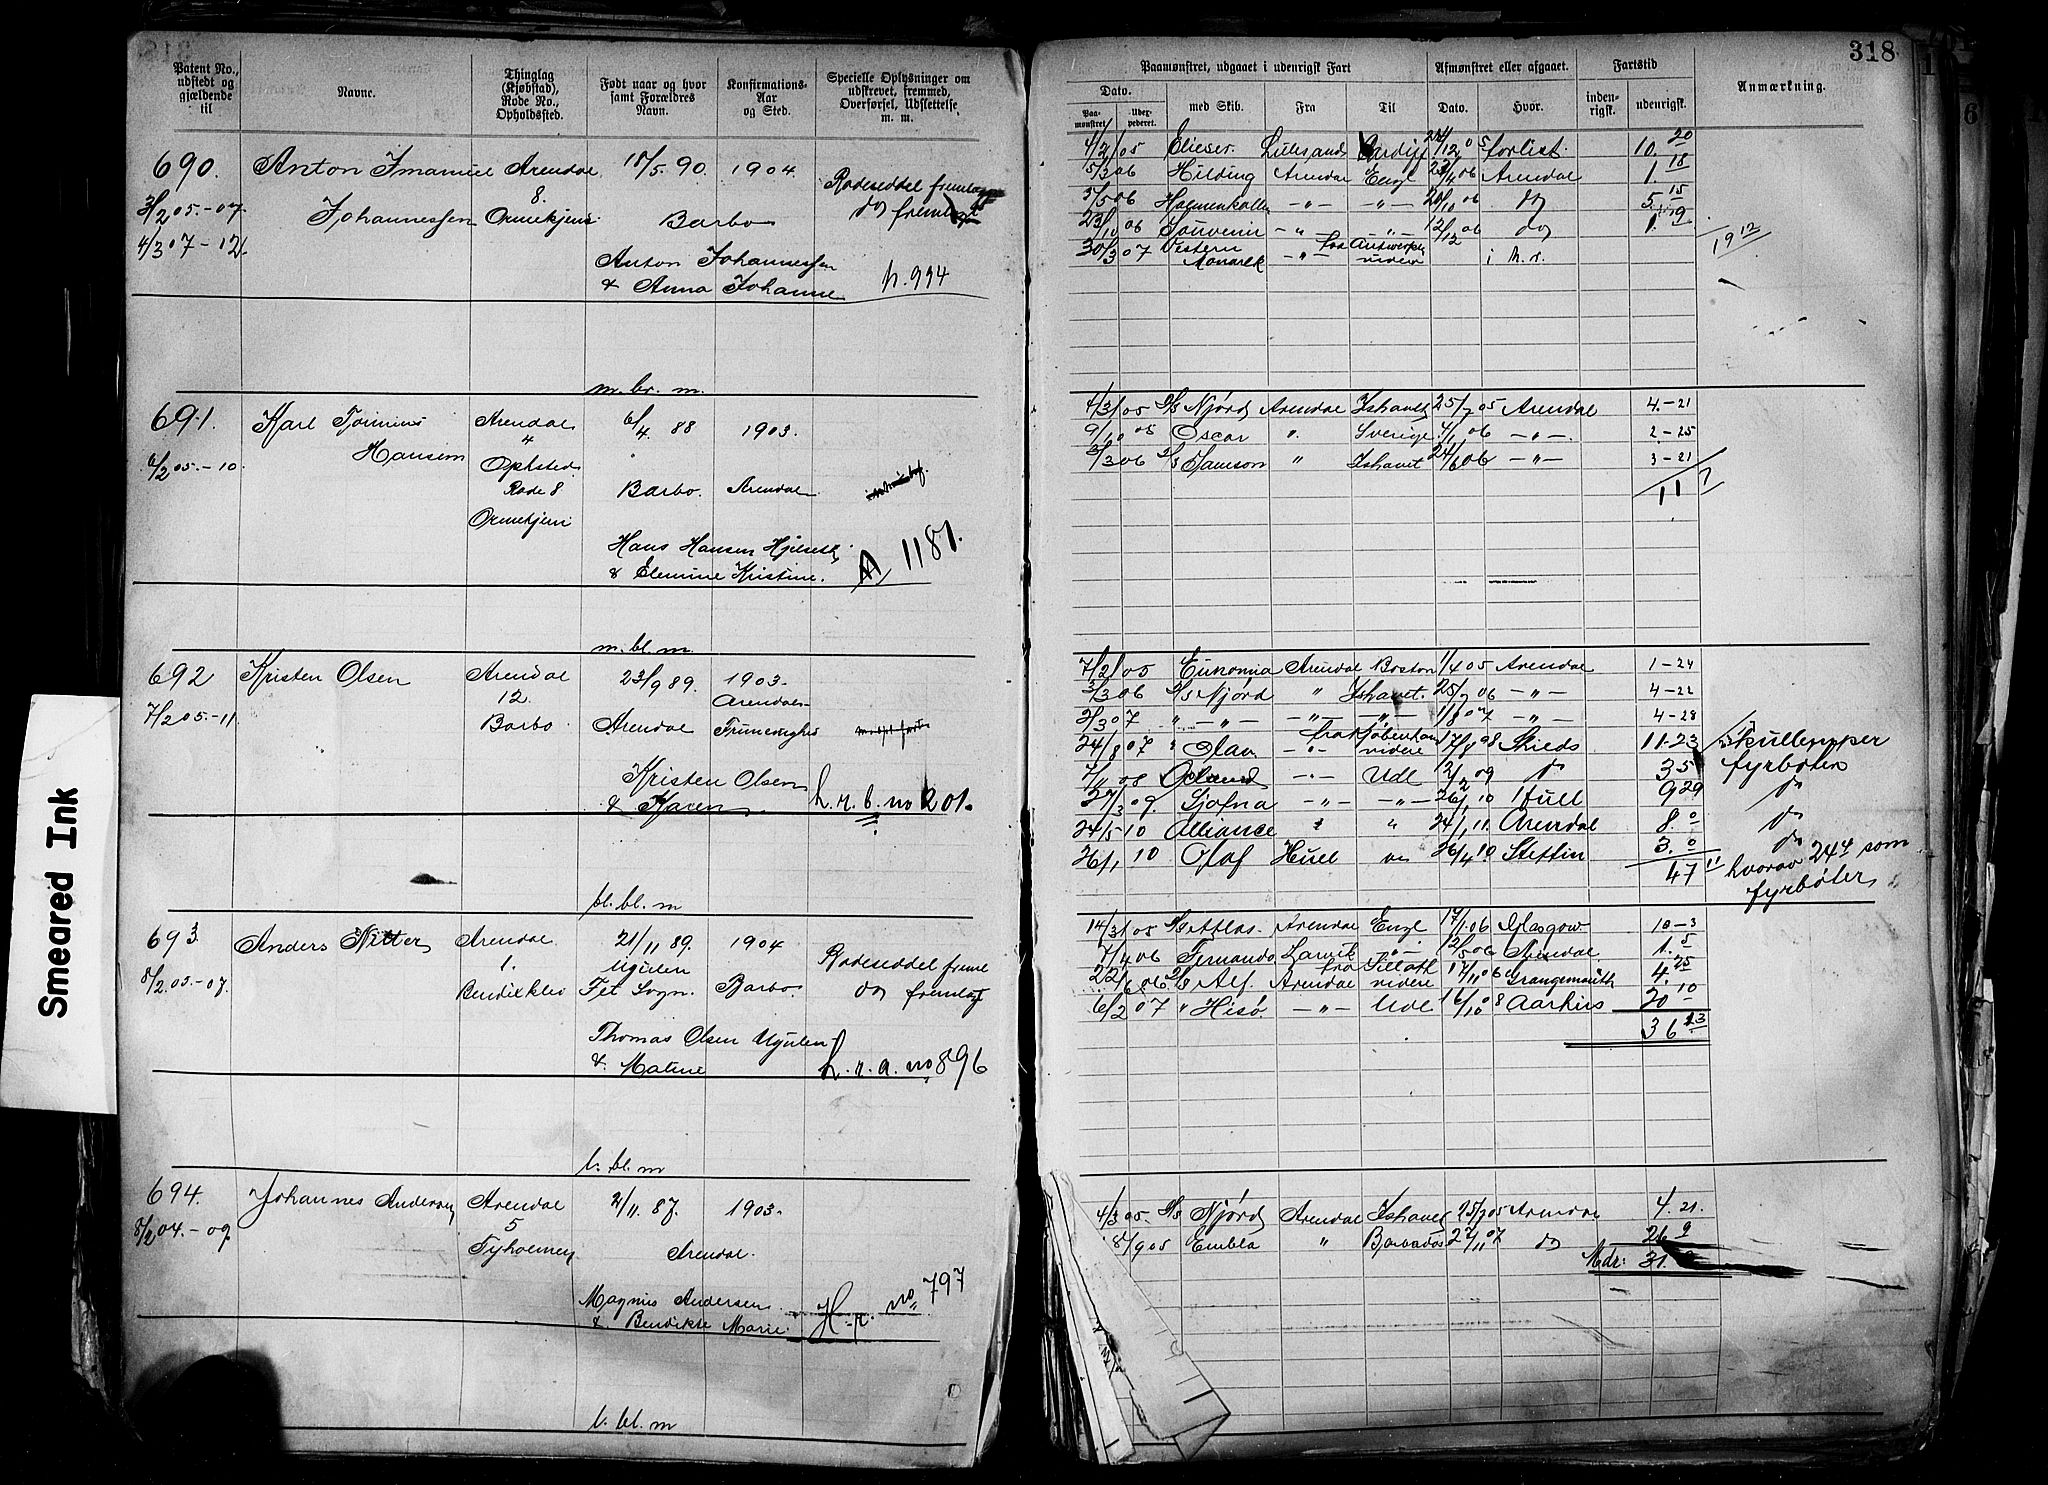 318
Patent No., udstedt og gjældende til
Navne.
Thinglag (Kjøbstad), Rode No., Opholdssted.
Født naar og hvor samt Forældres Navn.
Konfirmations-Aar og Sted.
Specielle Oplysninger om udskrevet, fremmed, Overførsel, Udslettelse m. m.
Paamønstret, udgaaet i udenrigsk Fart
Afmønstret eller afgaaet.
Fartstid
Anmærkning.
Dato.
Paamønstret
med Skib.
Fra
Til
Dato.
Hvor.
indenrigsk.
udenrigsk.
690. Anton Imanuel Arendal 15/5 90. 1904.
8.
3/2 05.-07. Johannessen Barbo
4/3 07-12.
Anton Johannessen
& Anna Johanne
h. 994
4/2 05 Elieser 5 forlist. 10. 20
5/3 06 Hilding Arendal Engl 23/4 06 Arendal 1. 18
5/5 06 -"- -"- 20/10 06 do 5. 15
23/10 06 Souvenir -"- -"- 12/12 06 do 1. 19
30/3 07 Western Monark -"- fra Antwerpen videre
19 12
m. br. m.
691. Karl Hansen Arendal 6/4 88 1903.
4
6/2 05.-10. Opholdsted Rode 8 Barbo. Arendal
Hans Hansen
& Elemine Kristine.
1181.
4/3 05 S/S Njörd Arendal Ishavet 25/7 05 Arendal 4.-21
9/10 05 Oscar ". Sverige 4/1 06 -"-. 2-25
3/3 06 S/S Samson " Ishavet 24/6 06 -"- 3-21
11
m. bl. m.
692 Kristen Olsen Arendal 23/9 89. 1903.
12. Arendal
7/2 05.-11 Barbo. Arendal
Kristen Olsen
& Maren
h. r. b. no 201.
7/2 05 Eunomia Arendal Boston 1/4 05 Arendal 1-24
3/3 06 S/S Njörd " Ishavet. 25/7 06 -"- 4-22
2/3 07 "-"- -"- -"- 1/8 07 -"- 4-28
24/8 07 " Olav -"- fra Kjöbenhavn videre 17/8 08 Shields 11.23
7/11 08 -"- Udl 12/2 09 do 3 5
27/3 09. Sjofna -"- -"- 26/2 10 Hull 9 29
24/5 10 Alliance " 24/1 11. Arendal 8. 0
26/1 10 Olaf Hull 26/4 10 Stettin 3. 0
47 11
fyrböter
do
do
hvorav 24 4 som
fyrböter
bl. bl. m
693. Anders Nitter Arendal 21/11 89. 1904
1. Ugulen
8/2 05.-07. Bendixklev Fet Sogn. Barbo.
Rodeseddel freml
do fremlagt
Thomas Olsen Ugulen
& Matine
h. r. a. no 896
14/3 05 S/S Atlas. Arendal Engl 17/1 06 Glasgow 10-3
7/4 06 Fernando Larvik -"- 12/5 06 Arendal 1. 5
22/6 06 S/S Alf. Arendal fra videre 17/11 06 Grangemouth 4. 25
6/2 07 " Hisö. -"- Udl 16/10 08 Aarhus 20 10
36 13
b. bl. m
694. Johannes Andersen Arendal 2/11 87. 1903.
5
8/2 04.-09. Tyholmen Arendal.
Magnus Andersen
& Bendikte Marie.
H. r. no 797
4/3 05. S/S Njörd Arendal Ishavet 25/7 05 Arendal 4. 21.
18/9 05 Embla " Barbados 27/11 07 do 26 9
Mdr: 31.
b. bl. m
Smeared Ink